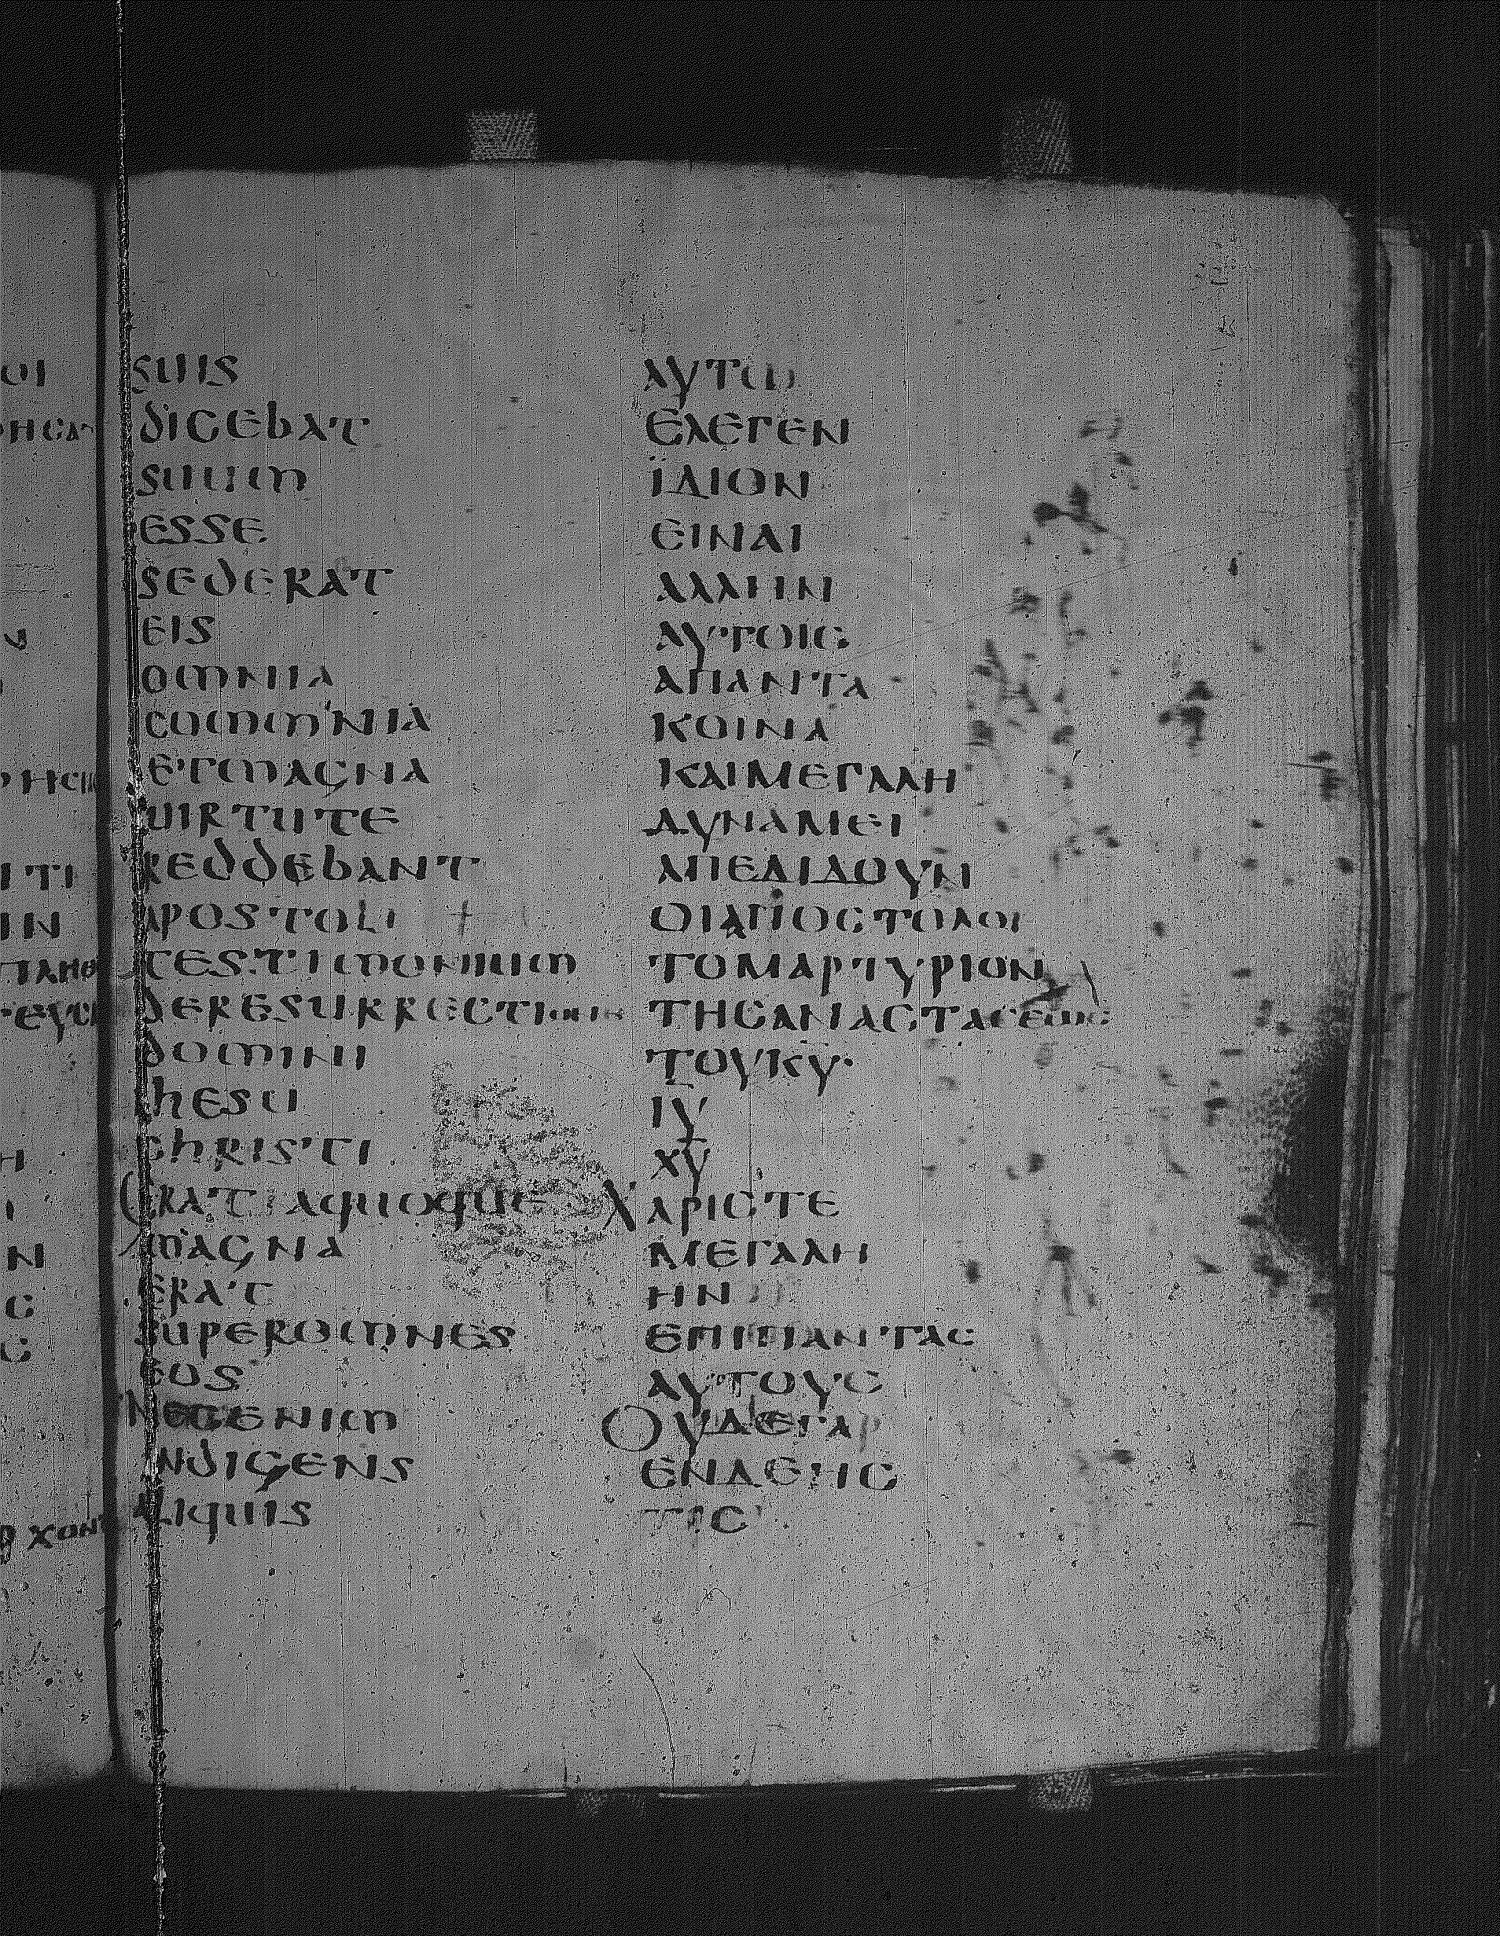 SUIS
DICEBAT
SUUM
ESSE
SEDERAT
EIS
OMNIA
COMMNIA
ETMAGNA
UIRTUTE
REDDEBANT
APOSTOLI
TESTIMONIUM
DERESURRECTIONE
DOMINI
IHESU
CHRISTI
GRATIAQUOQUE
MAGNA
ERAT
SUPEROMNES
EOS
NECENIM
INDIGENS
ALIQUIS
ΑΥΤΩ
ΕΛΕΓΕΝ
ΪΔΙΟΝ
ΕΙΝΑΙ
ΑΛΛΗΝ
ΑΥΤΟΙϹ
ΑΠΑΝΤΑ
ΚΟΙΝΑ
ΚΑΙΜΕΓΑΛΗ
ΔΥΝΑΜΕΙ
ΑΠΕΔΙΔΟΥΝ
ΟΙΑΠΟϹΤΟΛΟΙ
ΤΟΜΑΡΤΥΡΙΟΝ
ΤΗϹΑΝΑϹΤΑϹΕΩϹ
ΤΟΥΚΥ·
ΙΥ
ΧΥ
ΧΑΡΙϹΤΕ
ΜΕΓΑΛΗ
ΗΝ
ΕΠΙΠΑΝΤΑϹ
ΑΥΤΟΥϹ
ΟΥΔΕΓΑΡ
ΕΝΔΕΗϹ
ΤΙϹ